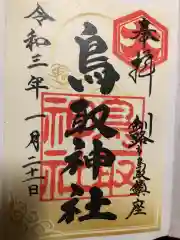 奉拝
鎮座
鳥取神社
令和三年
一月二十一日
鳥取神社